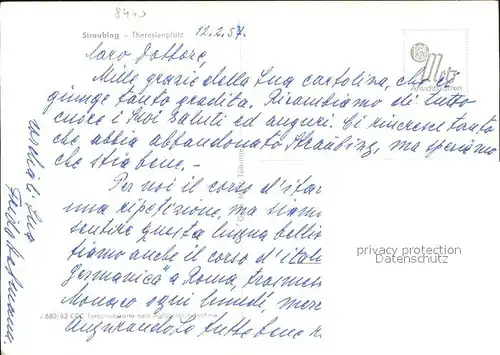 8440
Straubing – Theresienplatz
12.2.57.
Caro dottore,
Mille grazie della Sua cartolina, che
giunge tanto gradita. Ricambiamo di tutto
cuore i Suoi saluti ed auguri. Ci rincresce tanto
che abbia abbandonato Straubing, ma speriamo
che stia bene. –
Per noi il corso d'ital
una ripetizione, ma siam
sentire questa lingua bellis
tiamo anche il corso d'itali
germanica" a Roma, trasmess
Monaco ogni lunedì, merc
Augurando Le tutto bene
Metz
Ansichtskarten
privacy protection
Datenschutz
680/62
Sua
Frieda